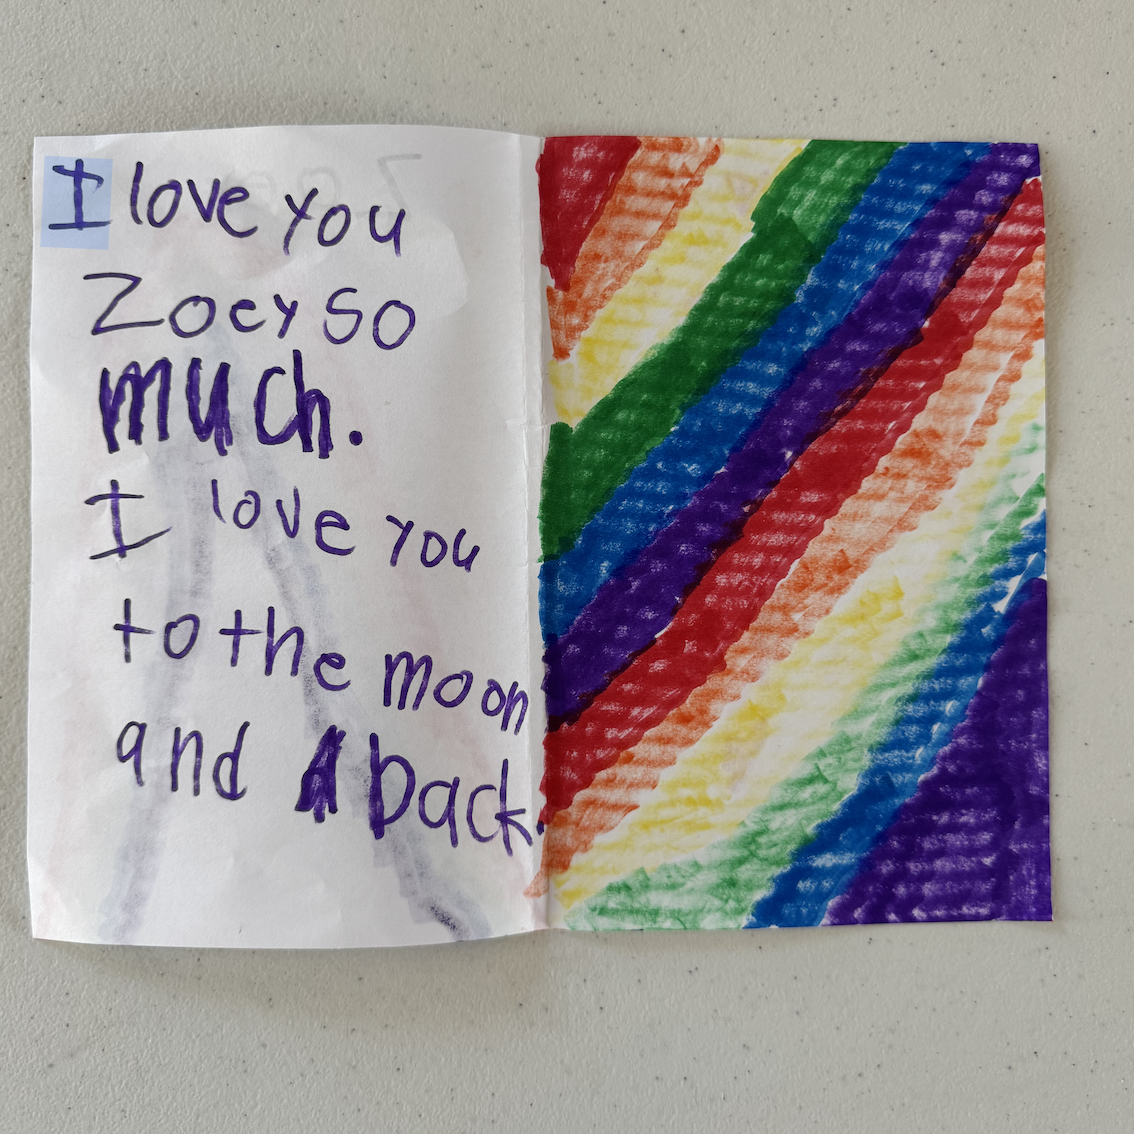 I love you
Zoey so
much.
I love you
to the moon
and back.